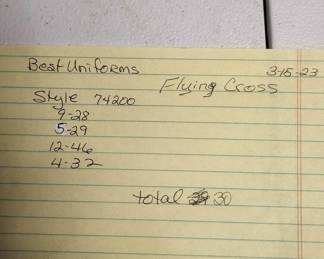 Best Uniforms 3-15-23
Flying Cross
Style 74200
9-28
5-29
12-46
4-32
total 30